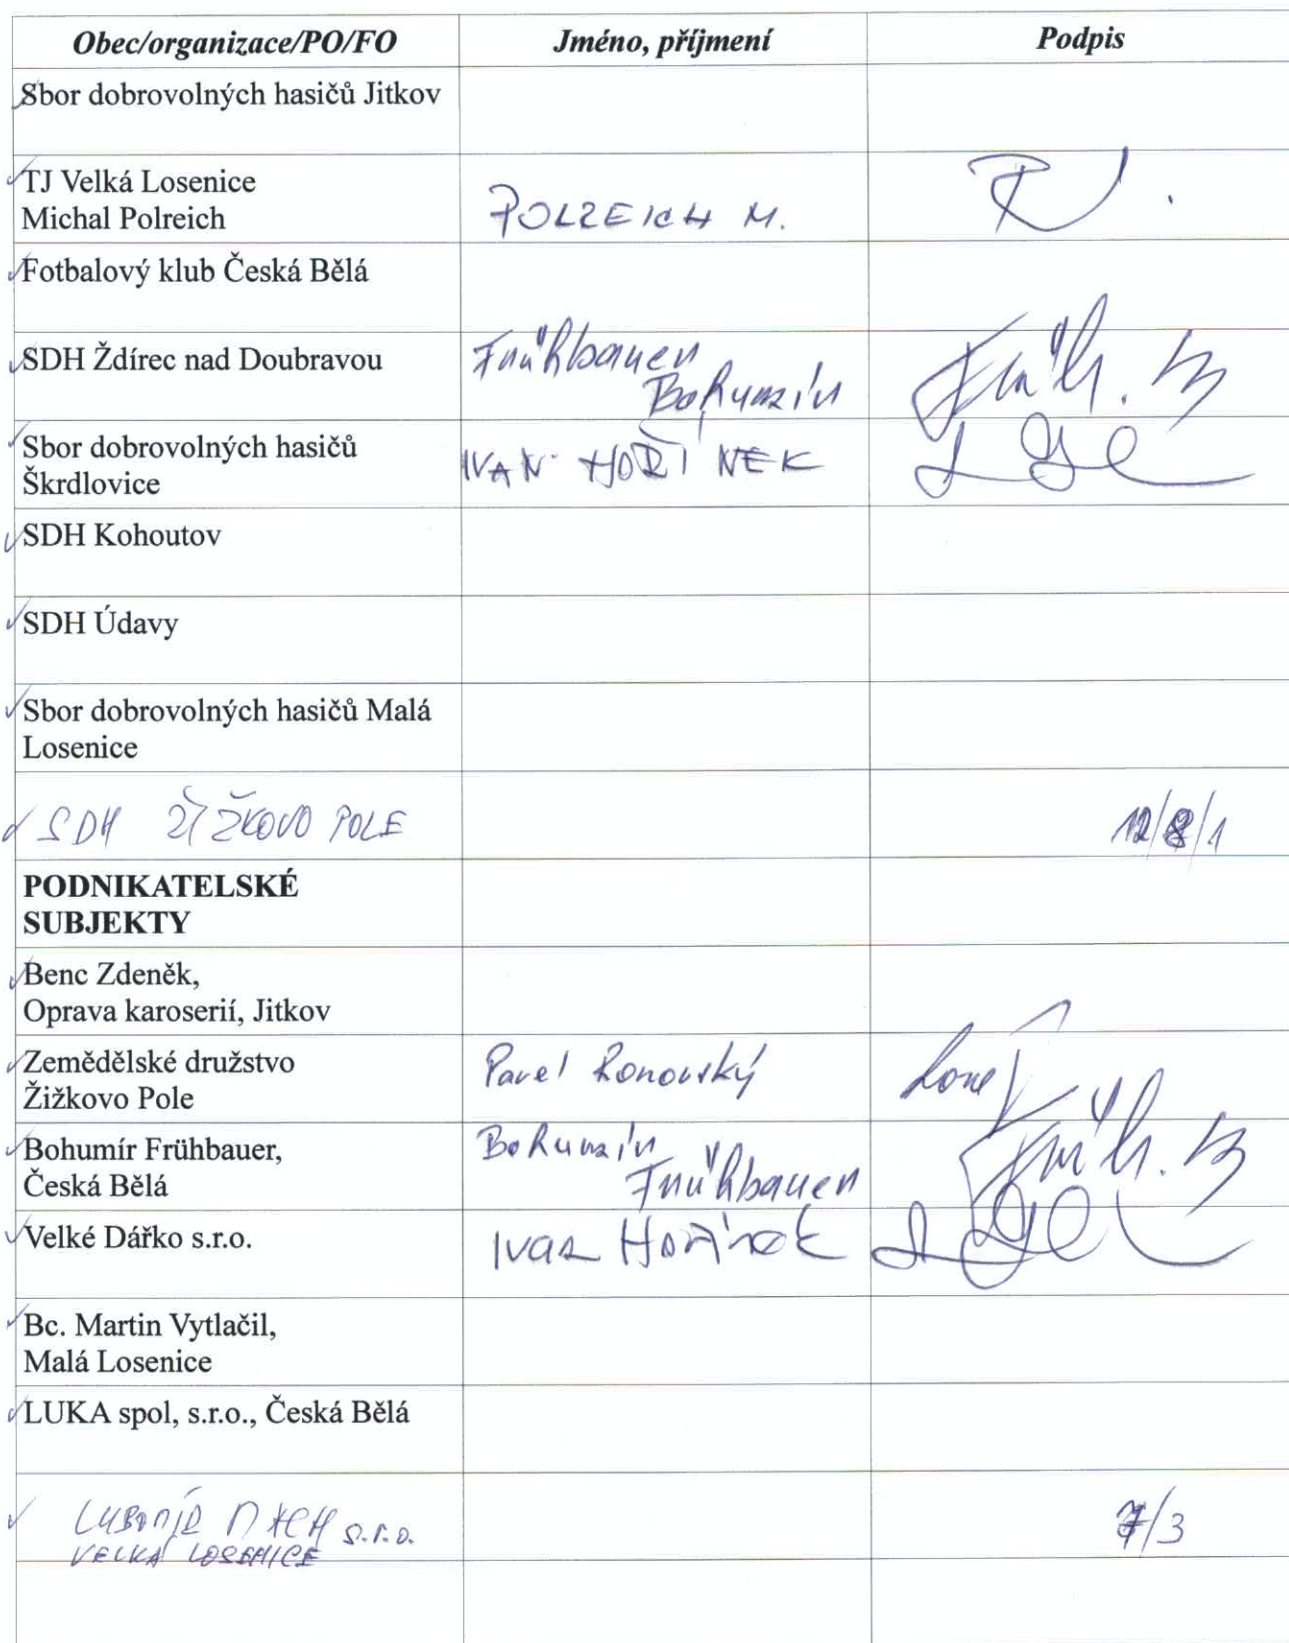 Obec/organizace/PO/FO Jméno, příjmení Podpis
Sbor dobrovolných hasičů Jitkov
TJ Velká Losenice
Michal Polreich
POLREICH M.
Fotbalový klub Česká Bělá
SDH Ždírec nad Doubravou
Frühbauer
Bohumír
Früh. B
Sbor dobrovolných hasičů
Škrdlovice
IVAN HOŘÍNEK
SDH Kohoutov
SDH Údavy
Sbor dobrovolných hasičů Malá
Losenice
SDH ŽIŽKOVO POLE
12/8/1
PODNIKATELSKÉ
SUBJEKTY
Benc Zdeněk,
Oprava karoserií, Jitkov
Zemědělské družstvo
Žižkovo Pole
Pavel Ronovský
Bohumír Frühbauer,
Česká Bělá
Bohumír
Frühbauer
Früh. B
Velké Dářko s.r.o.
Ivan Hořínek
Bc. Martin Vytlačil,
Malá Losenice
LUKA spol, s.r.o., Česká Bělá
LUBOMÍR s.r.o.
VELKÁ LOSENICE
7/3